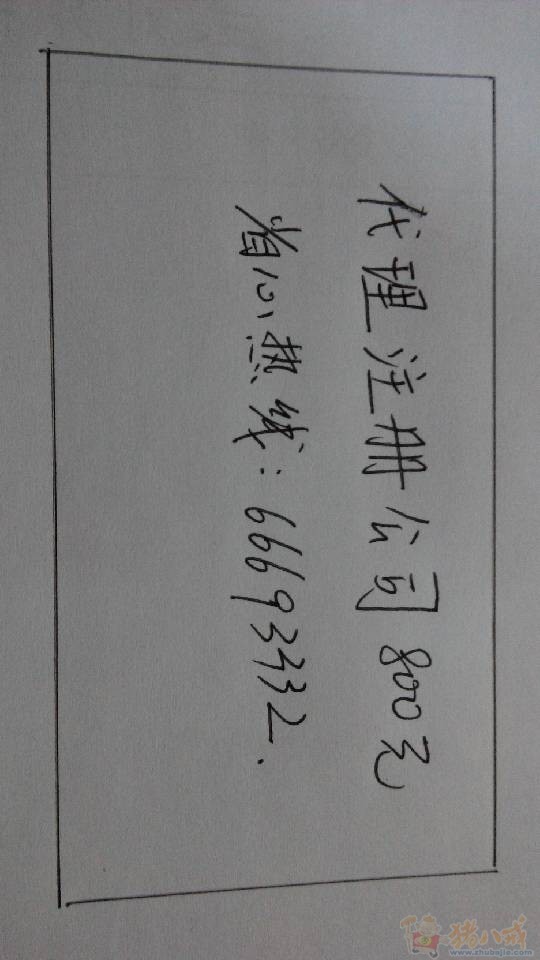 代理注册公司800元
省心热线：66693332.
猪八戒
www.zhubajie.com